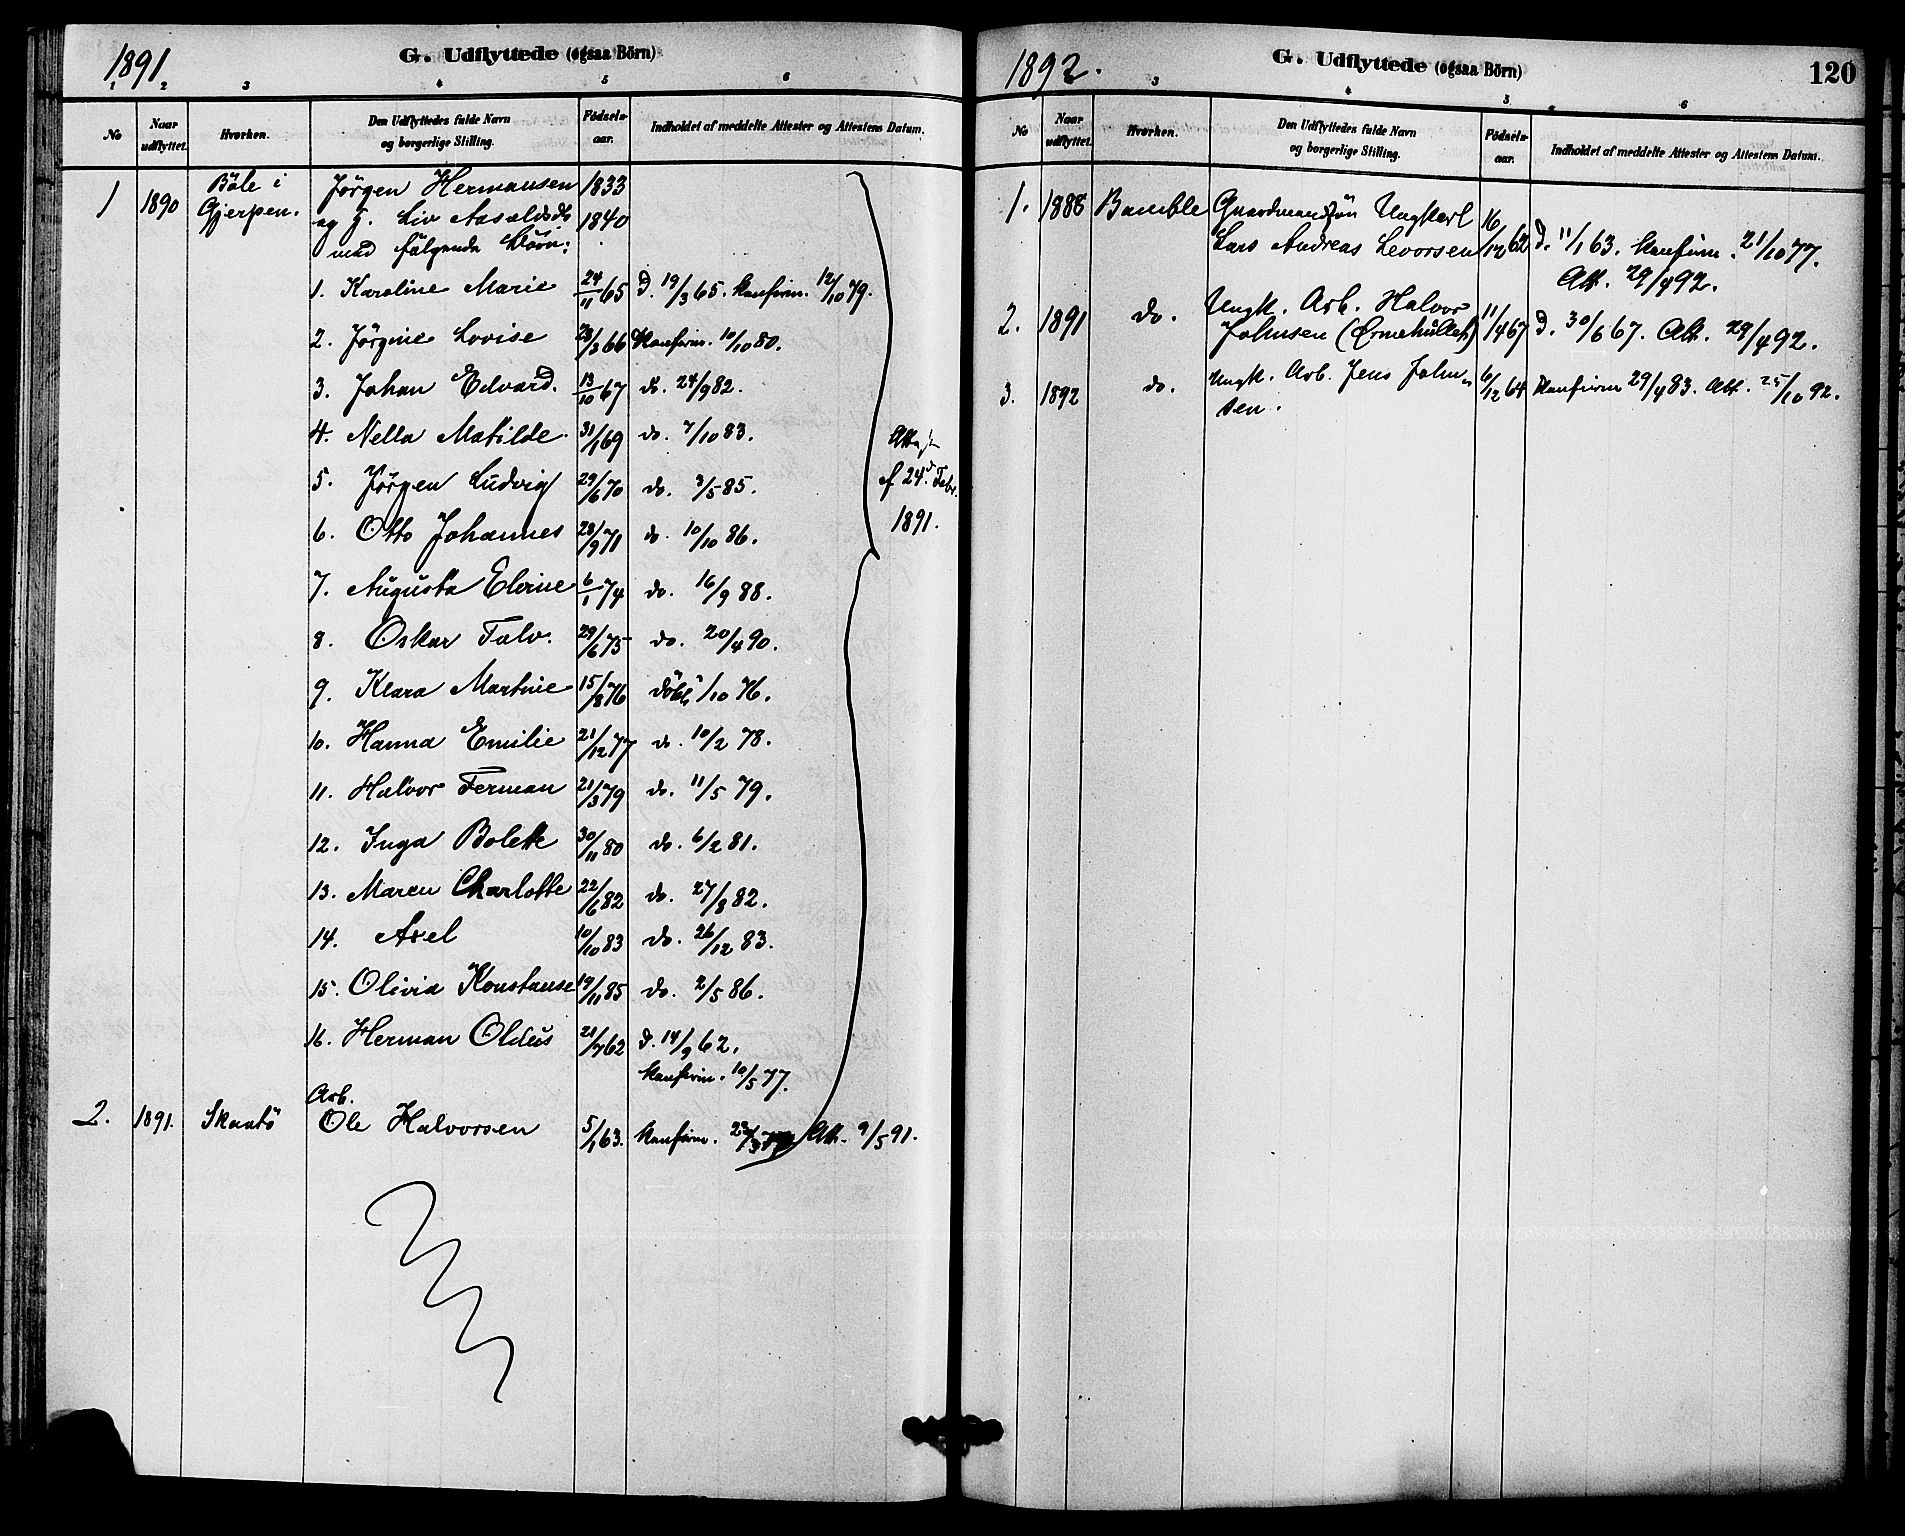 1891
G. Udflyttede (ogsaa Börn)
1 2 3 4 5 6
No
Naar udflyttet.
Hvorhen.
Den Udflyttedes fulde Navn og borgerlige Stilling.
Födsels-aar.
Indholdet af meddelte Attester og Attestens Datum.
1 1890 Böle i Jørgen Hermansen 1833
Gjerpen. og h. Liv Aasoldsdt 1840
med følgende Börn:
1. Karoline Marie 24/11 65 d. 19/3 65. konfirm. 12/10 79.
2. Jørgine Lovise 23/3 66 konfirm. 10/10 80.
3. Johan Edvard. 13/10 67 do. 24/9 82.
4. Nella Matilde. 31/1 69 do. 7/10 83.
5. Jørgen Ludvig 29/6 70 do. 3/5 85.
6. Otto Johannes 28/9 71 do. 10/10 86.
7. Augusta Elvine 6/1 74 do. 16/9 88.
8. Oskar Talv. 29/6 75 do. 20/4 90.
9. Klara Martine 15/8 76 döbt 1/10 76.
10. Hanna Emilie 21/12 77 do. 10/2 78.
11. Halvor Ferman 21/3 79 do. 11/5 79.
12. Inga Bolette 30/11 80 do. 6/2 81.
13. Maren Charlotte 22/6 82 do. 27/8 82.
14. Axel 10/10 83 do. 26/12 83.
15. Olivia Konstanse 19/11 85 do. 2/5 86.
16. Herman Oldus 21/7 62 d. 14/9 62.
konfirm. 10/5 77.
f 24d Febr.
1891.
Arb.
2. 1891. Skaatö Ole Halvorsen 5/1 63. konfirm. Att. 9/5 91.
1892.
G. Udflyttede (ogsaa Börn)
120
3 4 5 6
No
Naar udflyttet.
Hvorhen.
Den Udflyttedes fulde Navn og borgerlige Stilling.
Födsels-aar.
Indholdet af meddelte Attester og Attestens Datum.
1. 1888 Bamble Gaardmandssön Ungkarl 16
Lars Andreas Levorsen /12 62 d. 11/1 63. konfirm. 21/10 77.
Att. 29/4 92.
2. 1891 do. Ungk. Arb. Halvor 11
Johnsen (Ormehullet) /4 67 d. 30/6 67. Att. 29/4 92.
3. 1892 do. Ungk. Arb. Jens John- 6/12 64 konfirm 29/4 83. Att. 25/10 92.
sen.